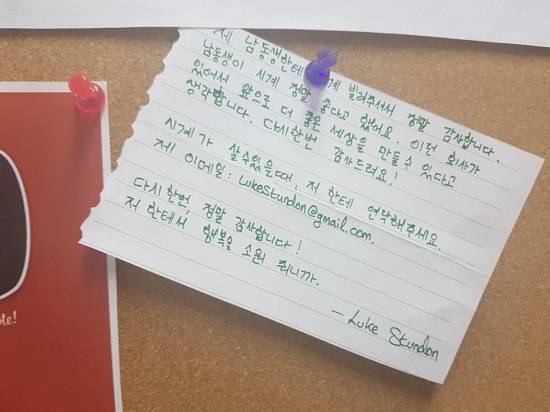 제 남동생한테 시계 빌려주셔서 정말 감사합니다.
남동생이 시계 정말 좋다고 했어요. 이런 회사가
있어서 앞으로 더 좋은 세상을 만들수 있다고
생각합니다. 다시한번 감사드려요!
시계가 살수있을때, 저 한테 연락해주세요.
제 이메일: LukeStundon@gmail.com.
다시한번, 정말 감사합니다!
저 한테서 행복을 소원 줘니까.
— Luke Stundon